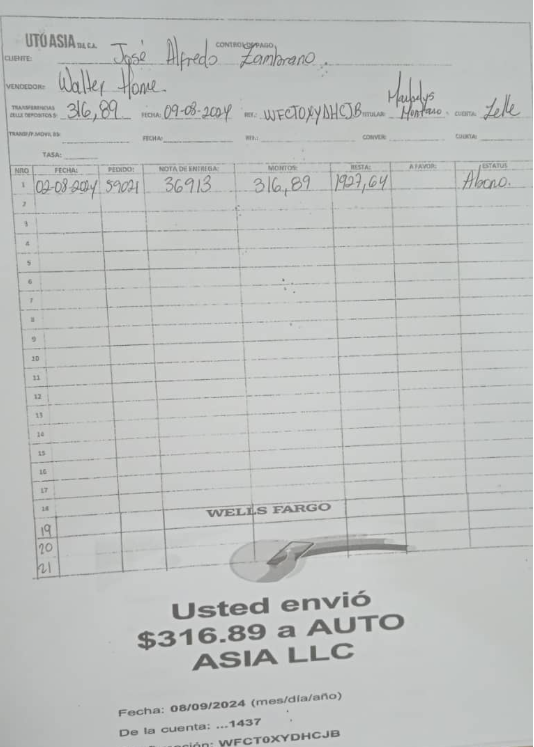 UTO ASIA
CONTROL DE PAGO
CLIENTE: José Alfredo Zambrano.
VENDEDOR: Walter Home.
TRANSFERENCIAS ZELLE/DEPOSITOS $: 316,89 FECHA: 09-08-2024 REF.: WFCT0XYDHCJB TITULAR: CUENTA: Zelle
TRANSF/P.MOVIL BS: FECHA: REF.: CONVER: CUENTA:
TASA:
NRO FECHA: PEDIDO: NOTA DE ENTREGA: MONTOS: RESTA: A FAVOR: ESTATUS
1 02-08-2024 59021 36913 316,89 1927,64 Abono.
2
3
4
5
6
7
8
9
10
11
12
13
14
15
16
17
18
WELLS FARGO
19
20
21
Usted envió
$316.89 a AUTO
ASIA LLC
Fecha: 08/09/2024 (mes/día/año)
De la cuenta: ...1437
WFCT0XYDHCJB